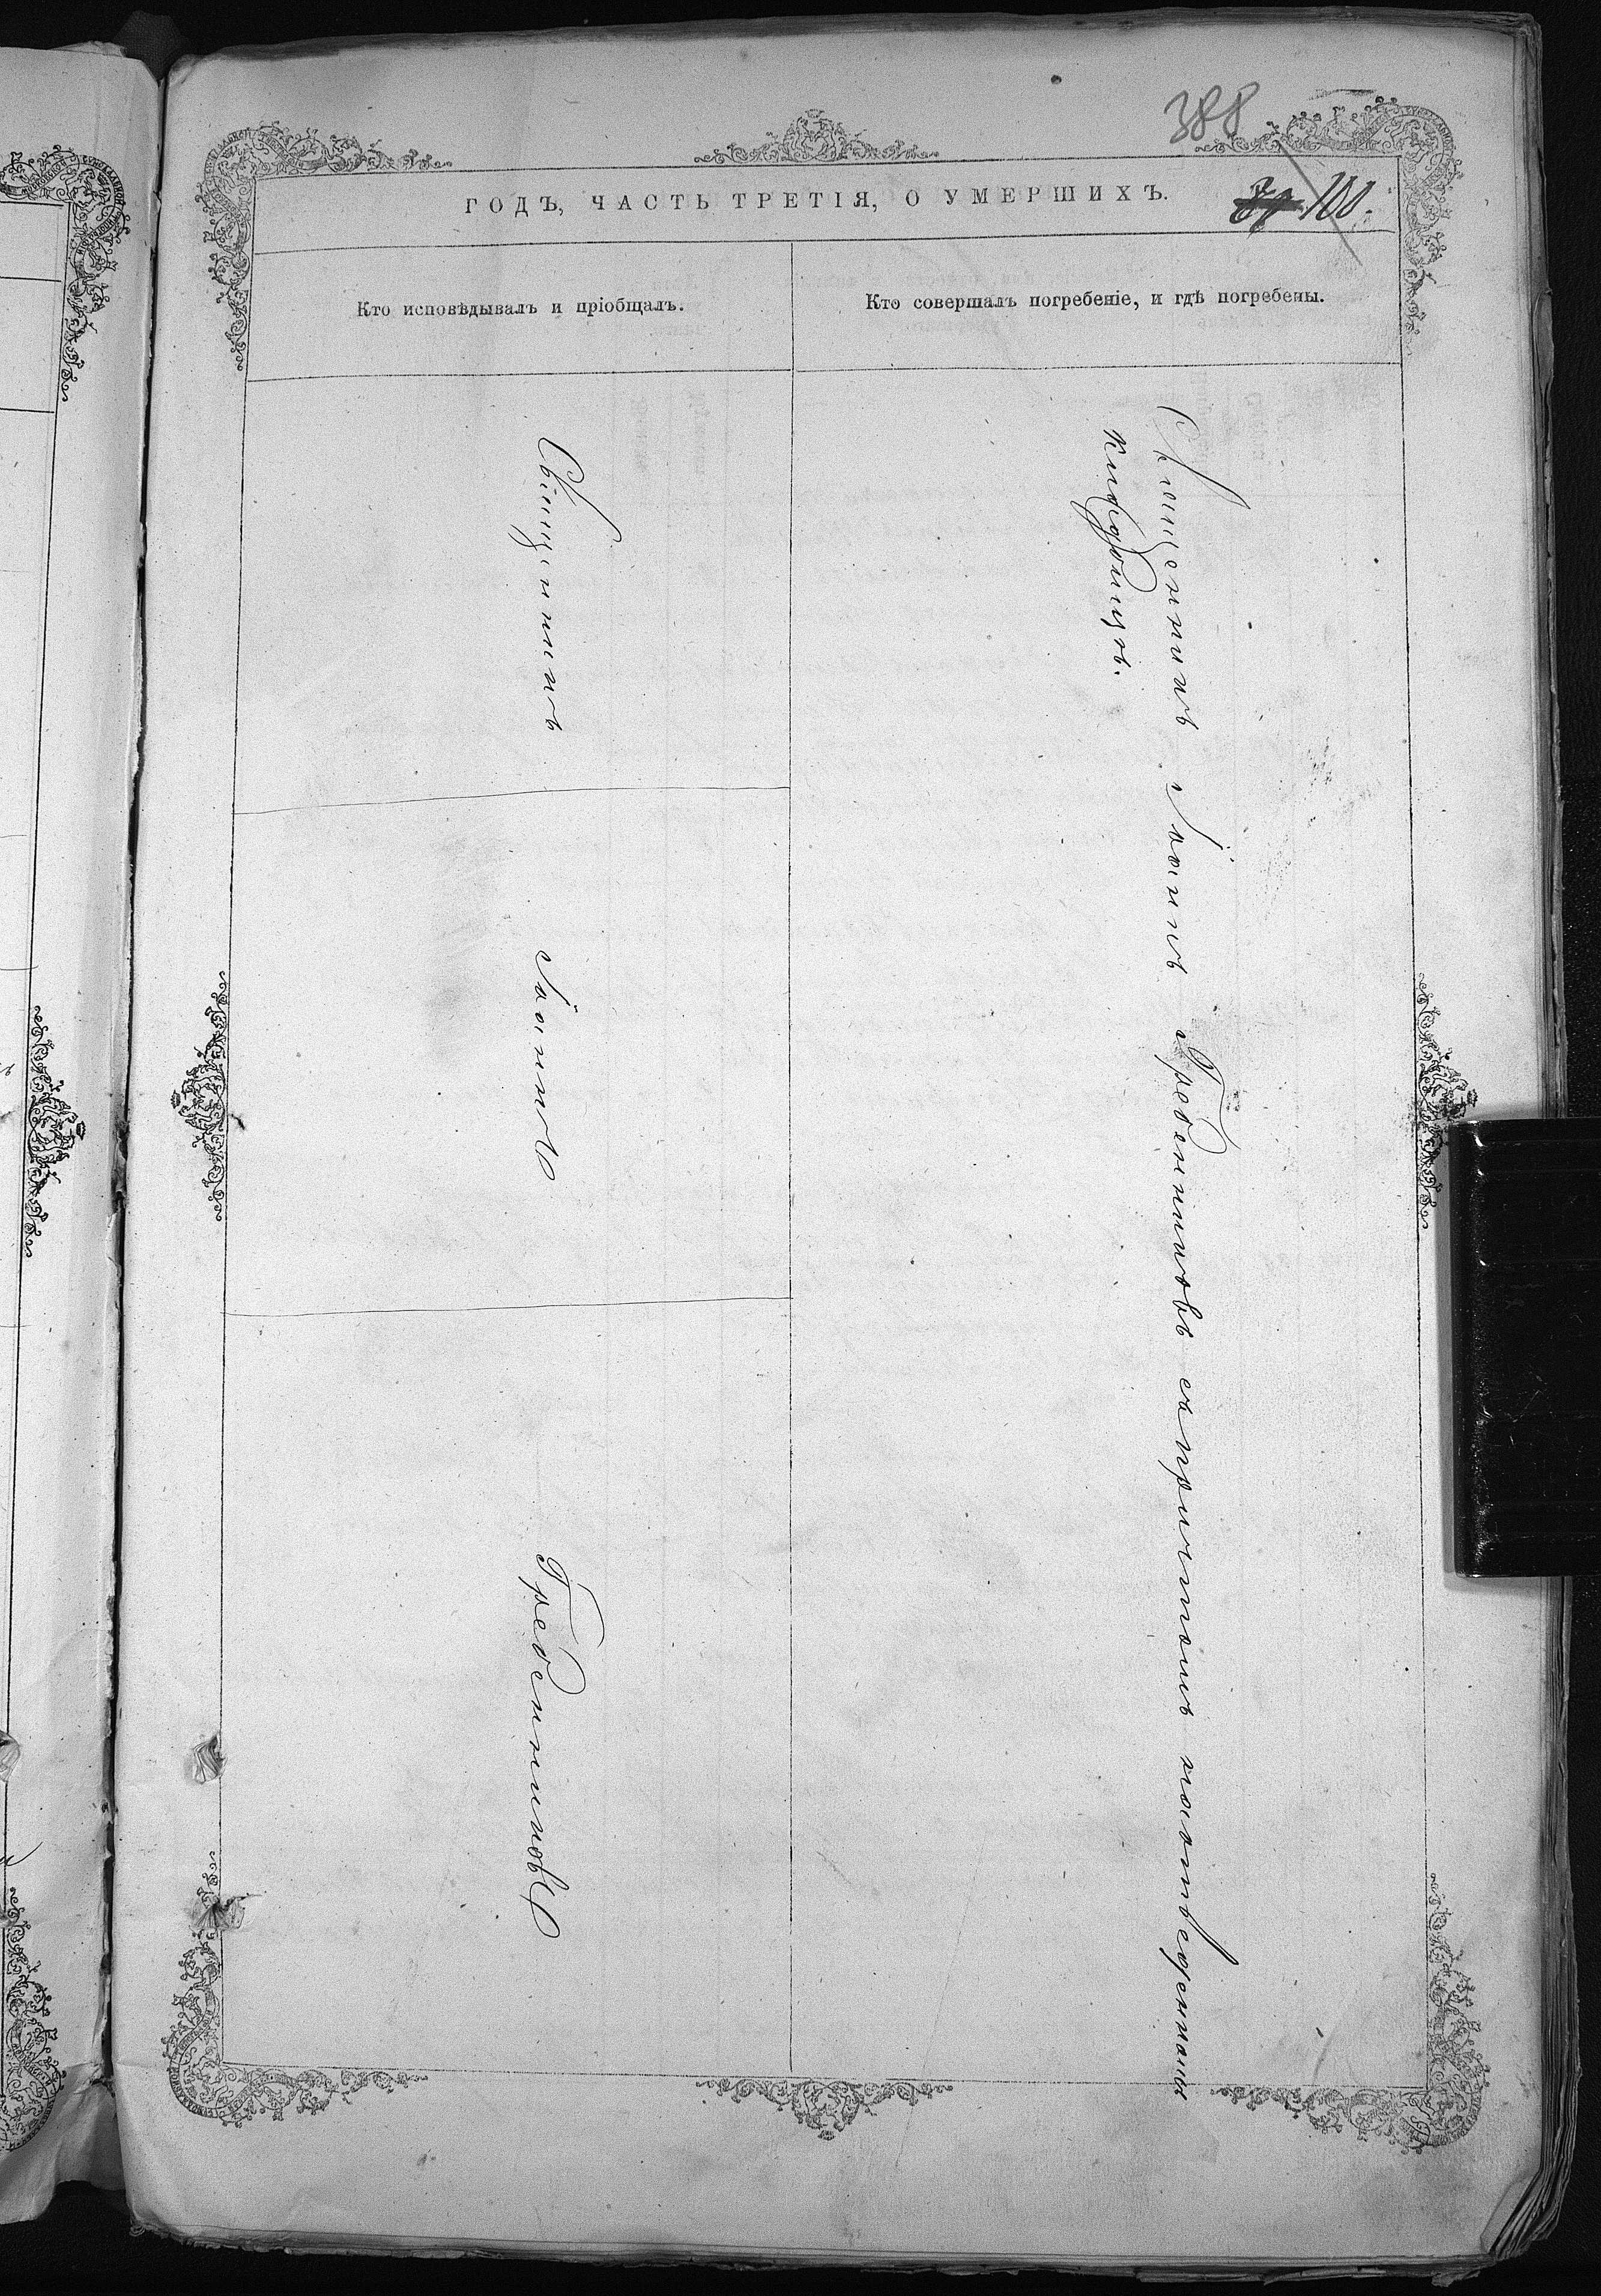 388
100.
ГОДЪ, ЧАСТЬ ТРЕТІЯ, О УМЕРШИХЪ.
Кто исповѣдывалъ и пріобщалъ.
Кто совершалъ погребеніе, и гдѣ погребены.
Священникъ
Іоаннъ
Гребенниковъ
Священникъ Іоаннъ Гребенниковъ съ причтомъ на отведенномъ
кладбищѣ.